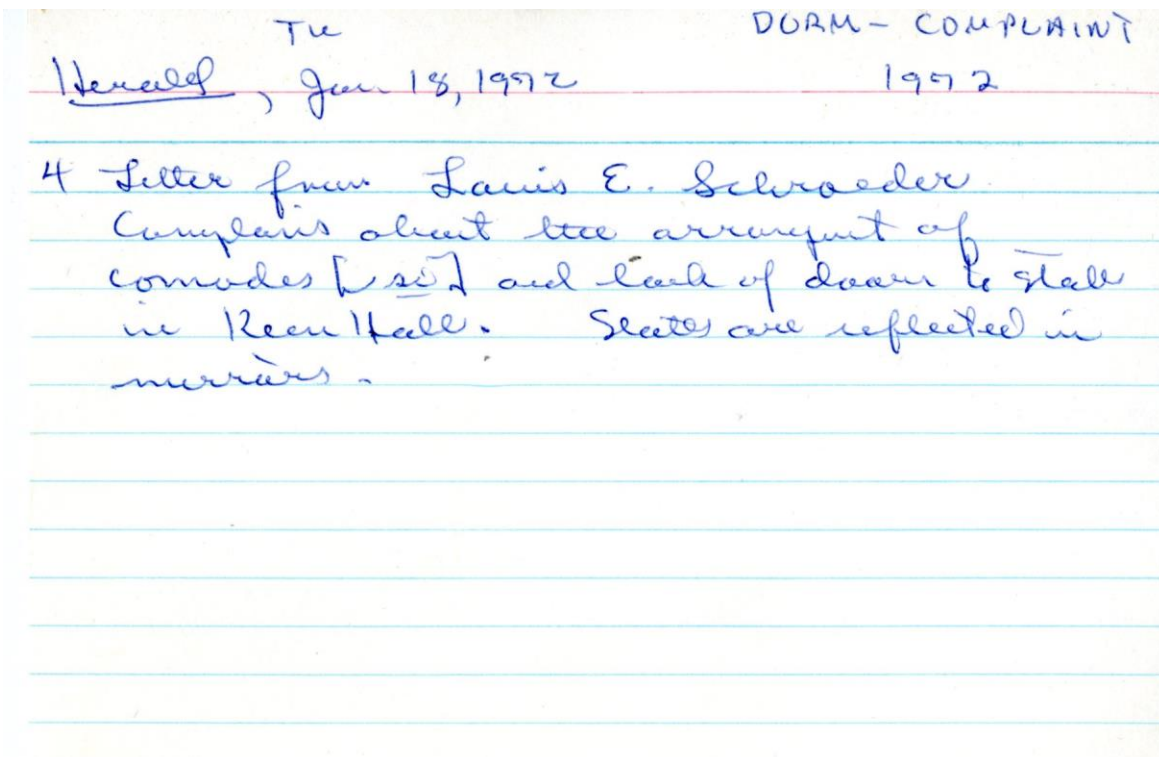 Tu DORM - COMPLAINT
Herald, Jan 18, 1972 1972
4 Letter from Louis E. Schroeder
Complains about the arrangment of
comodes [sic] and lack of doors to stalls
in Keen Hall. Seats are reflected in
mirrors.